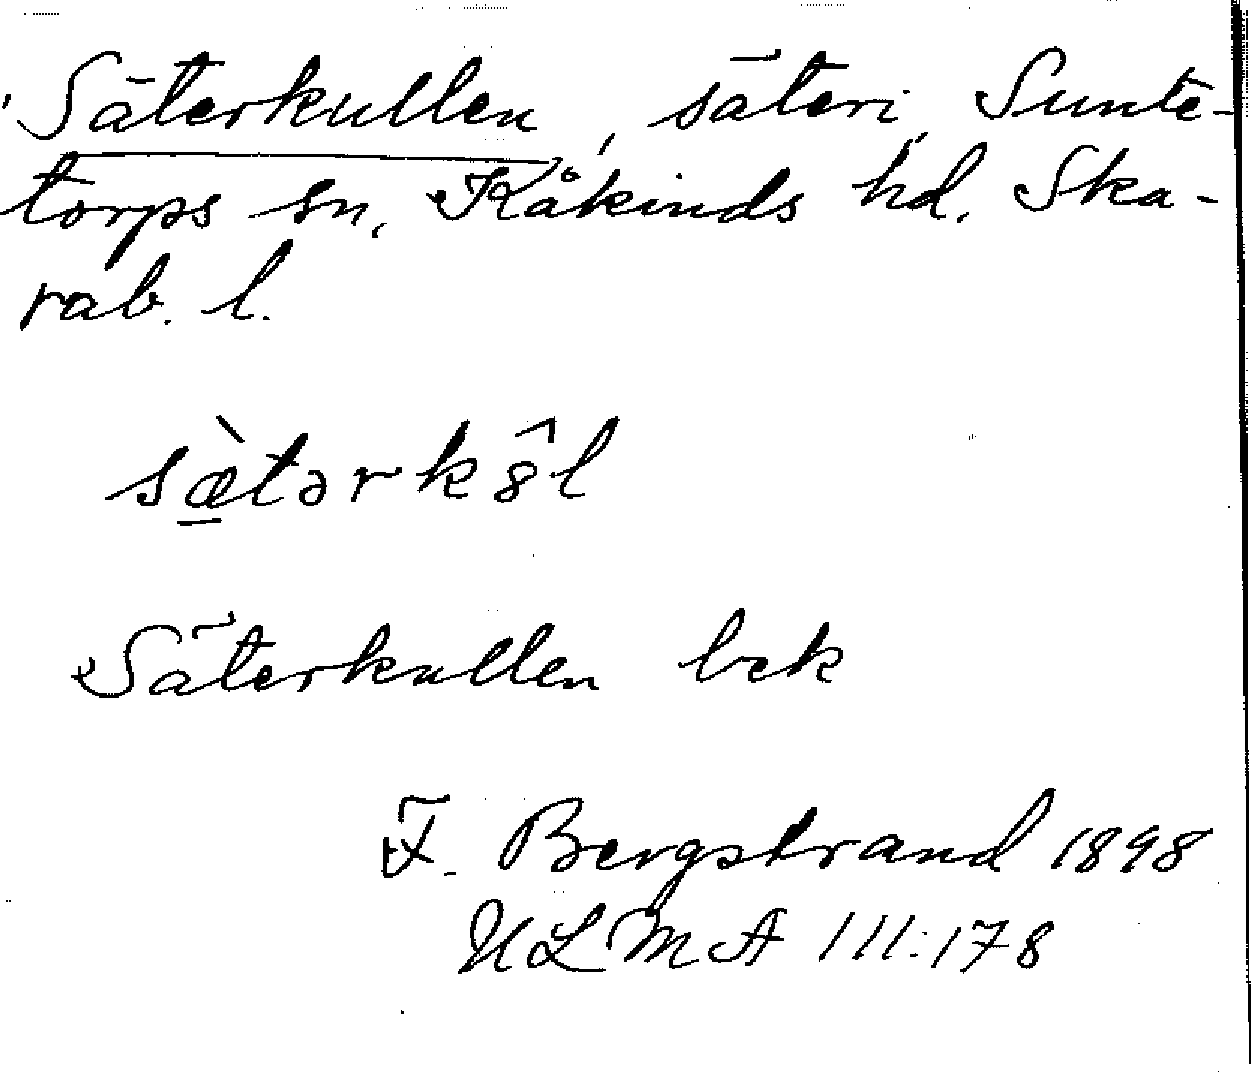 Säterkullen, säteri, Sunte-
torps sn, Kåkinds hd, Ska-
rab. l.
sæ̠̀tərk8̂l
Säterkullen bek
F. Bergstrand 1898
ULMA 111:178